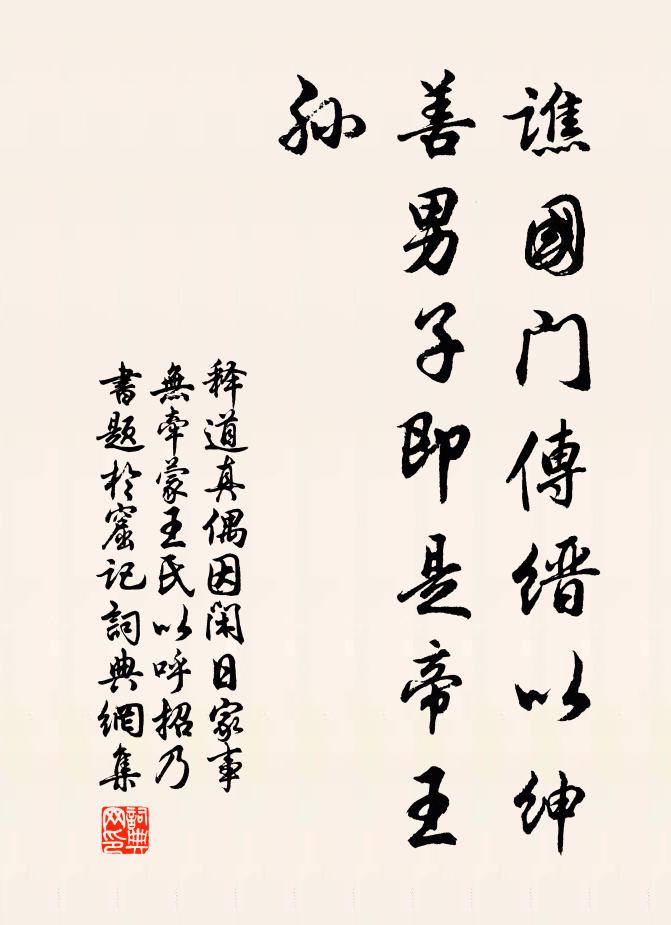 譙國門傳缙以紳
善男子即是帝王
孫
释道真偶因闲日家事
無牽蒙王氏以呼招乃
書题於窟记詞典網集
詞典
网印